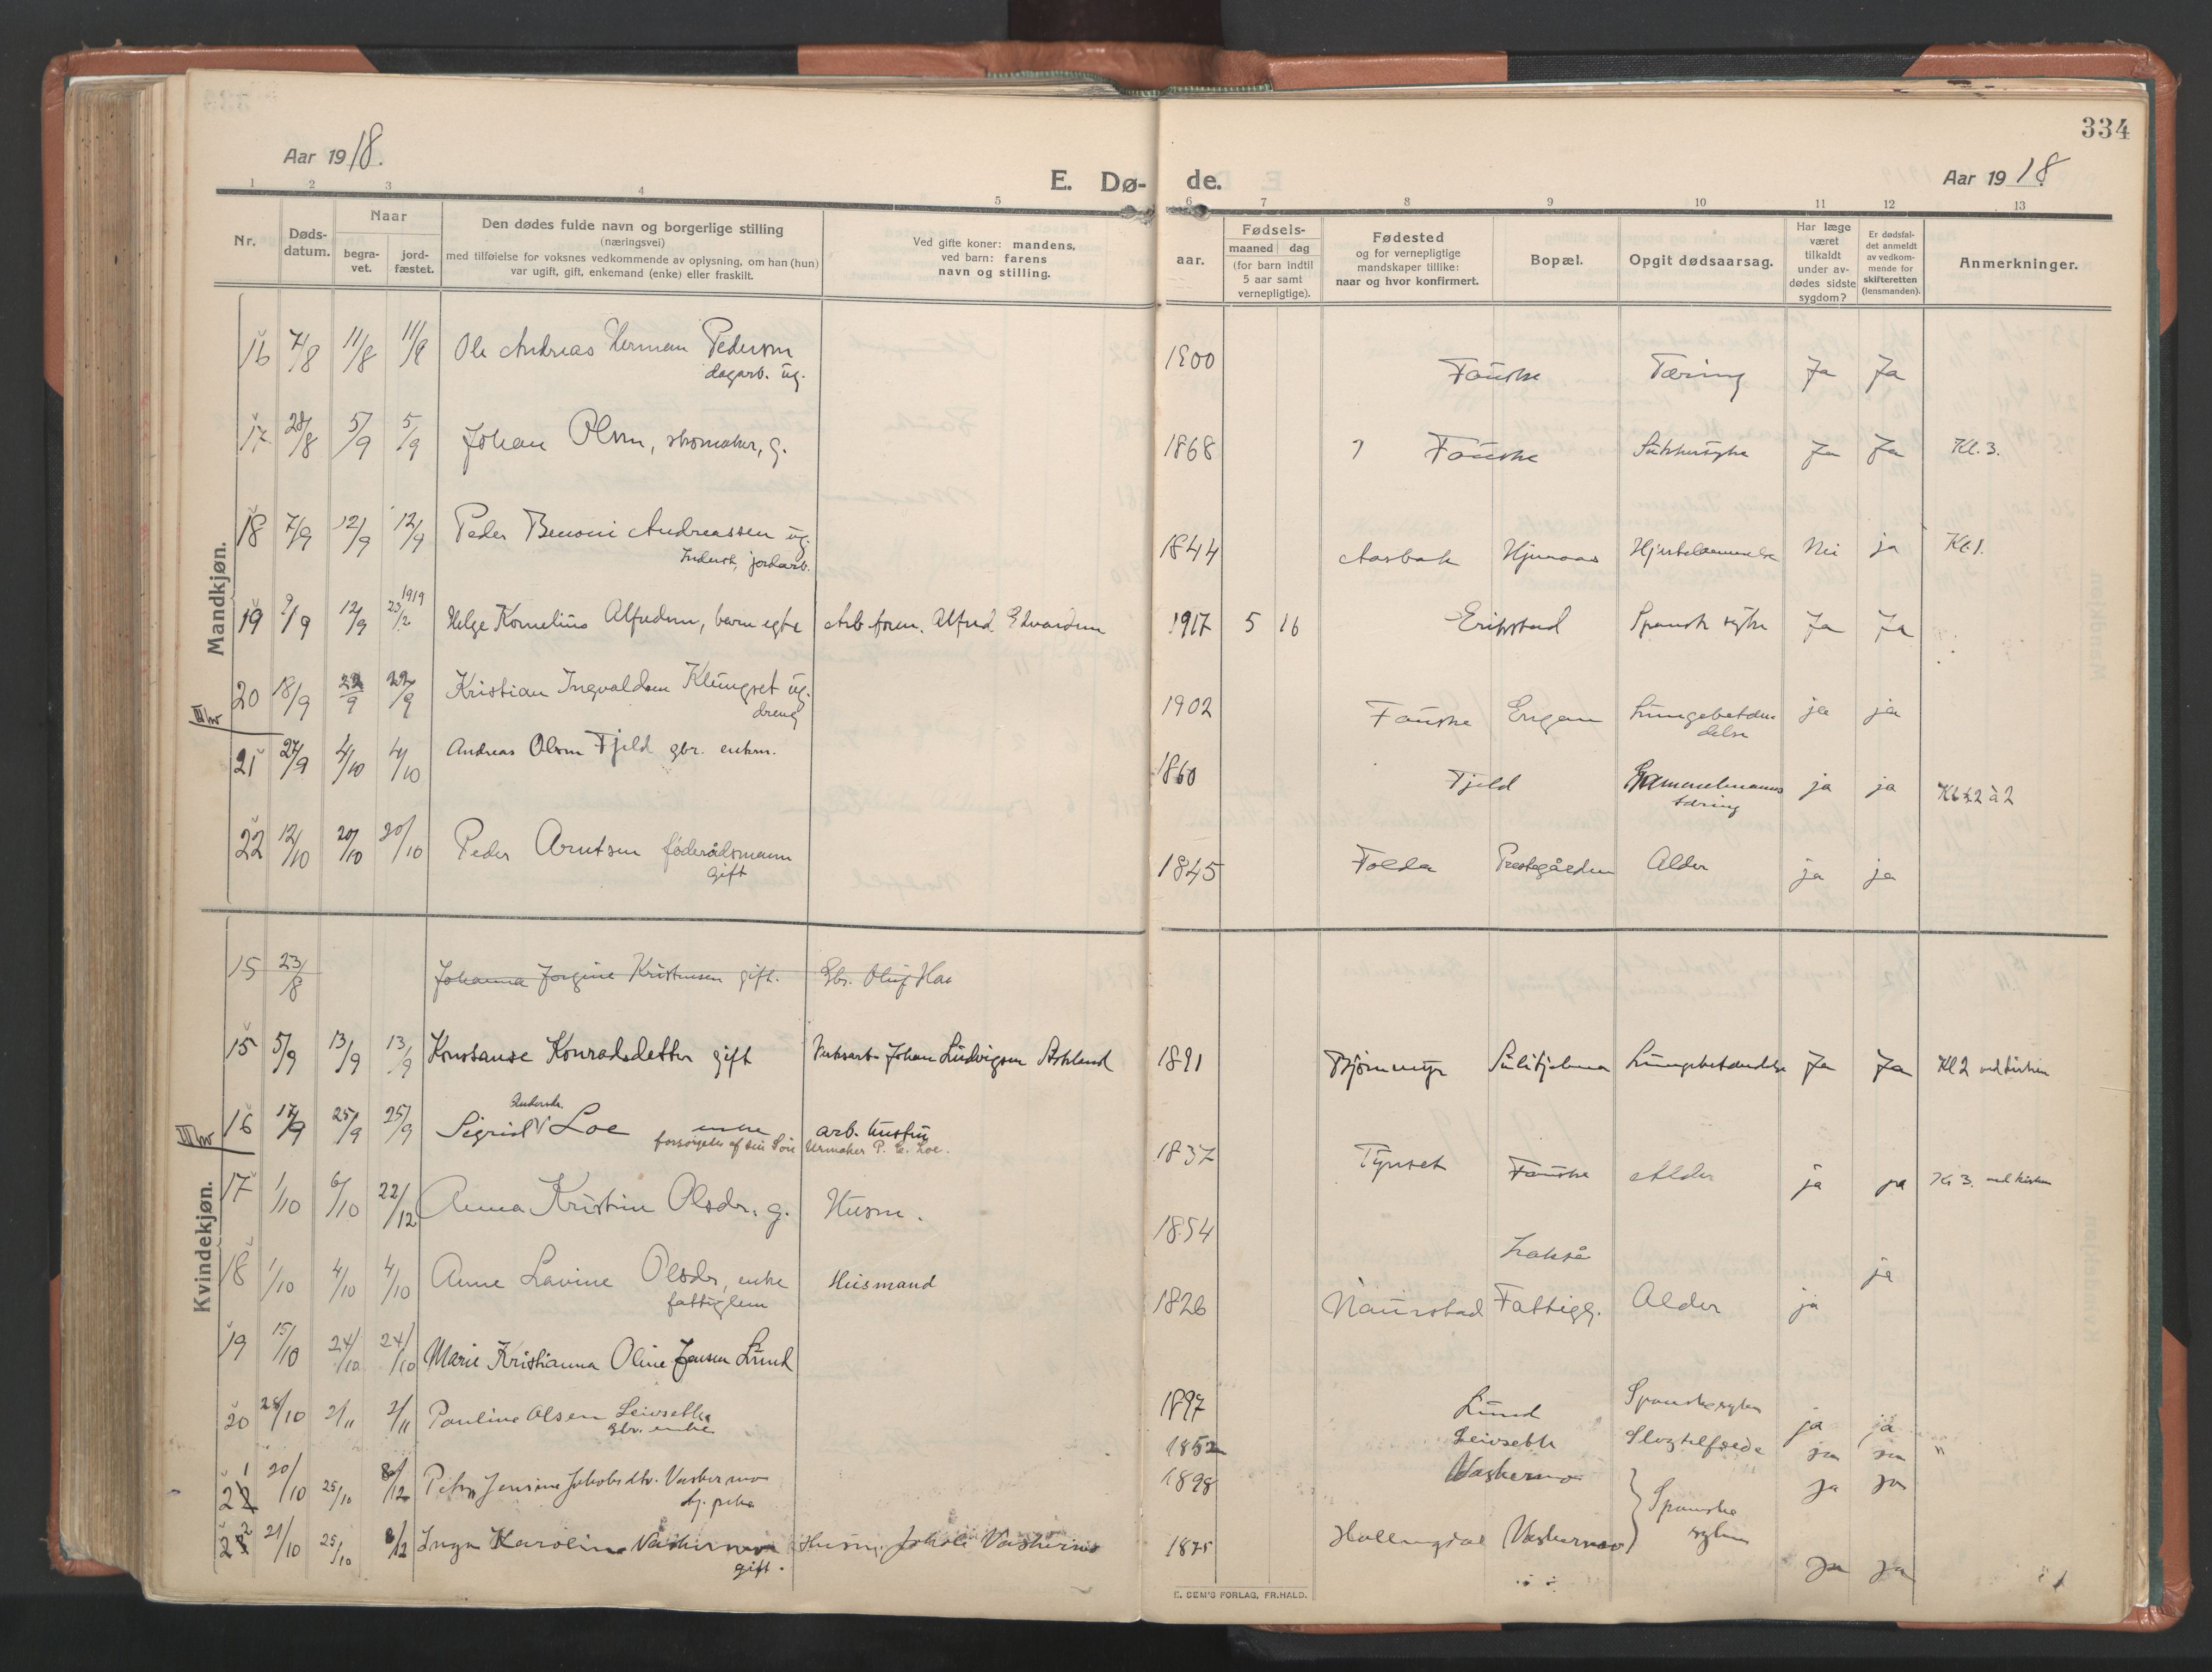 334
Aar 1918.
E. Dø-
de.
Aar 1918
1 2 3 4 5 6 7 8 9 10 11 12 13
Nr.
Døds-
datum.
Naar
begra-
vet.
jord-
fæstet.
Den dødes fulde navn og borgerlige stilling
(næringsvei)
med tilføielse for voksnes vedkommende av oplysning, om han (hun)
var ugift, gift, enkemand (enke) eller fraskilt.
Ved gifte koner: mandens,
ved barn: farens
navn og stilling.
aar.
Fødsels-
maaned dag
(for barn indtil
5 aar samt
vernepligtige).
Fødested
og for vernepligtige
mandskaper tillike:
naar og hvor konfirmert.
Bopæl.
Opgit dødsaarsag.
Har læge
været
tilkaldt
under av-
dødes sidste
sygdom?
Er dødsfal-
det anmeldt
av vedkom-
mende for
skifteretten
(lensmanden).
Anmerkninger.
Mandkjøn.
16 7/8 11/8 11/8 Ole Andreas Herman Pedersen 1900 Fauske Tæring Ja Ja
dagarb. ug.
17 28/8 5/9 5/9 Johan Olsen, skomaker, g. 1868 Fauske Sukkersyke Ja Ja Kl. 3.
18 7/9 12/9 12/9 Peder Benoni Andreassen ug. 1844 Aasbak Hjemaas Hjertelammelse Nei ja Kl. 1.
Inderst, jordarb.
1919
19 9/9 12/9 23/2 Helge Kornelius Alfredsen, barn egte Arb.form. Alfred Edvardsen 1917 5 16 Erikstad Spansk syke Ja Ja
20 18/9 22/9 22/9 Kristian Ingvaldsen Klungset ug. 1902 Fauske Engan Lungebetæn-
delse ja ja
dreng
III kv
21 27/9 4/10 4/10 Andreas Olsen Fjeld gbr. enkm. 1860 Fjeld Gammelmanns
tæring ja ja
22 12/10 20/10 20/10 Peder Arntsen føderådsmann 1845 Folda Prestegården Alder ja ja
gift
Kvindekjøn.
15 23/8 Johanna Jorgine Kristensen gift. Gbr. Oluf Haa
15 5/9 13/9 13/9 Konstanse Konradsdatter gift Verksarb. Johan Ludvigsen Stokland 1891 Bjørnmyr Sulitjelma Lungebetændelse Ja Ja Kl 2 ved kirken
Andersdr.
16 17/9 25/9 25/9 Sigrid Loe enke arb. hustru 1837 Tynset Fauske Alder ja ja Kl 3. ved kirken
forsørgedes af sin Søn Urmaker P. E. Loe.
III kv
17 1/10 6/10 22/12 Anna Kristine Olsdr. g. Husm. 1854 Lakså ja
18 1/10 4/10 4/10 Anne Lavine Olsdr, enke Husmand 1826 Naurstad Fattigg. Alder ja
fattiglem
19 15/10 24/10 24/10 Marie Kristianna Oline Jensen Lund 1897 Lund Spanskesyken ja ja
20 28/10 2/11 2/11 Pauline Olsen Leivseth 1852 Leivseth Slagtilfælde ja ja "
Gbr. enke
21 20/10 25/10 8/12 Petra Jensine Jakobsdtr. Vaskermo 1898 Vaskermo Spanske
syken ja ja
tj. pike
22 21/10 25/10 8/12 Inga Karoline Vaskermo Husm. Jakob Vaskermo 1875 Vaskermo ja ja
gift.
E. SEM'S FORLAG, FR.HALD.